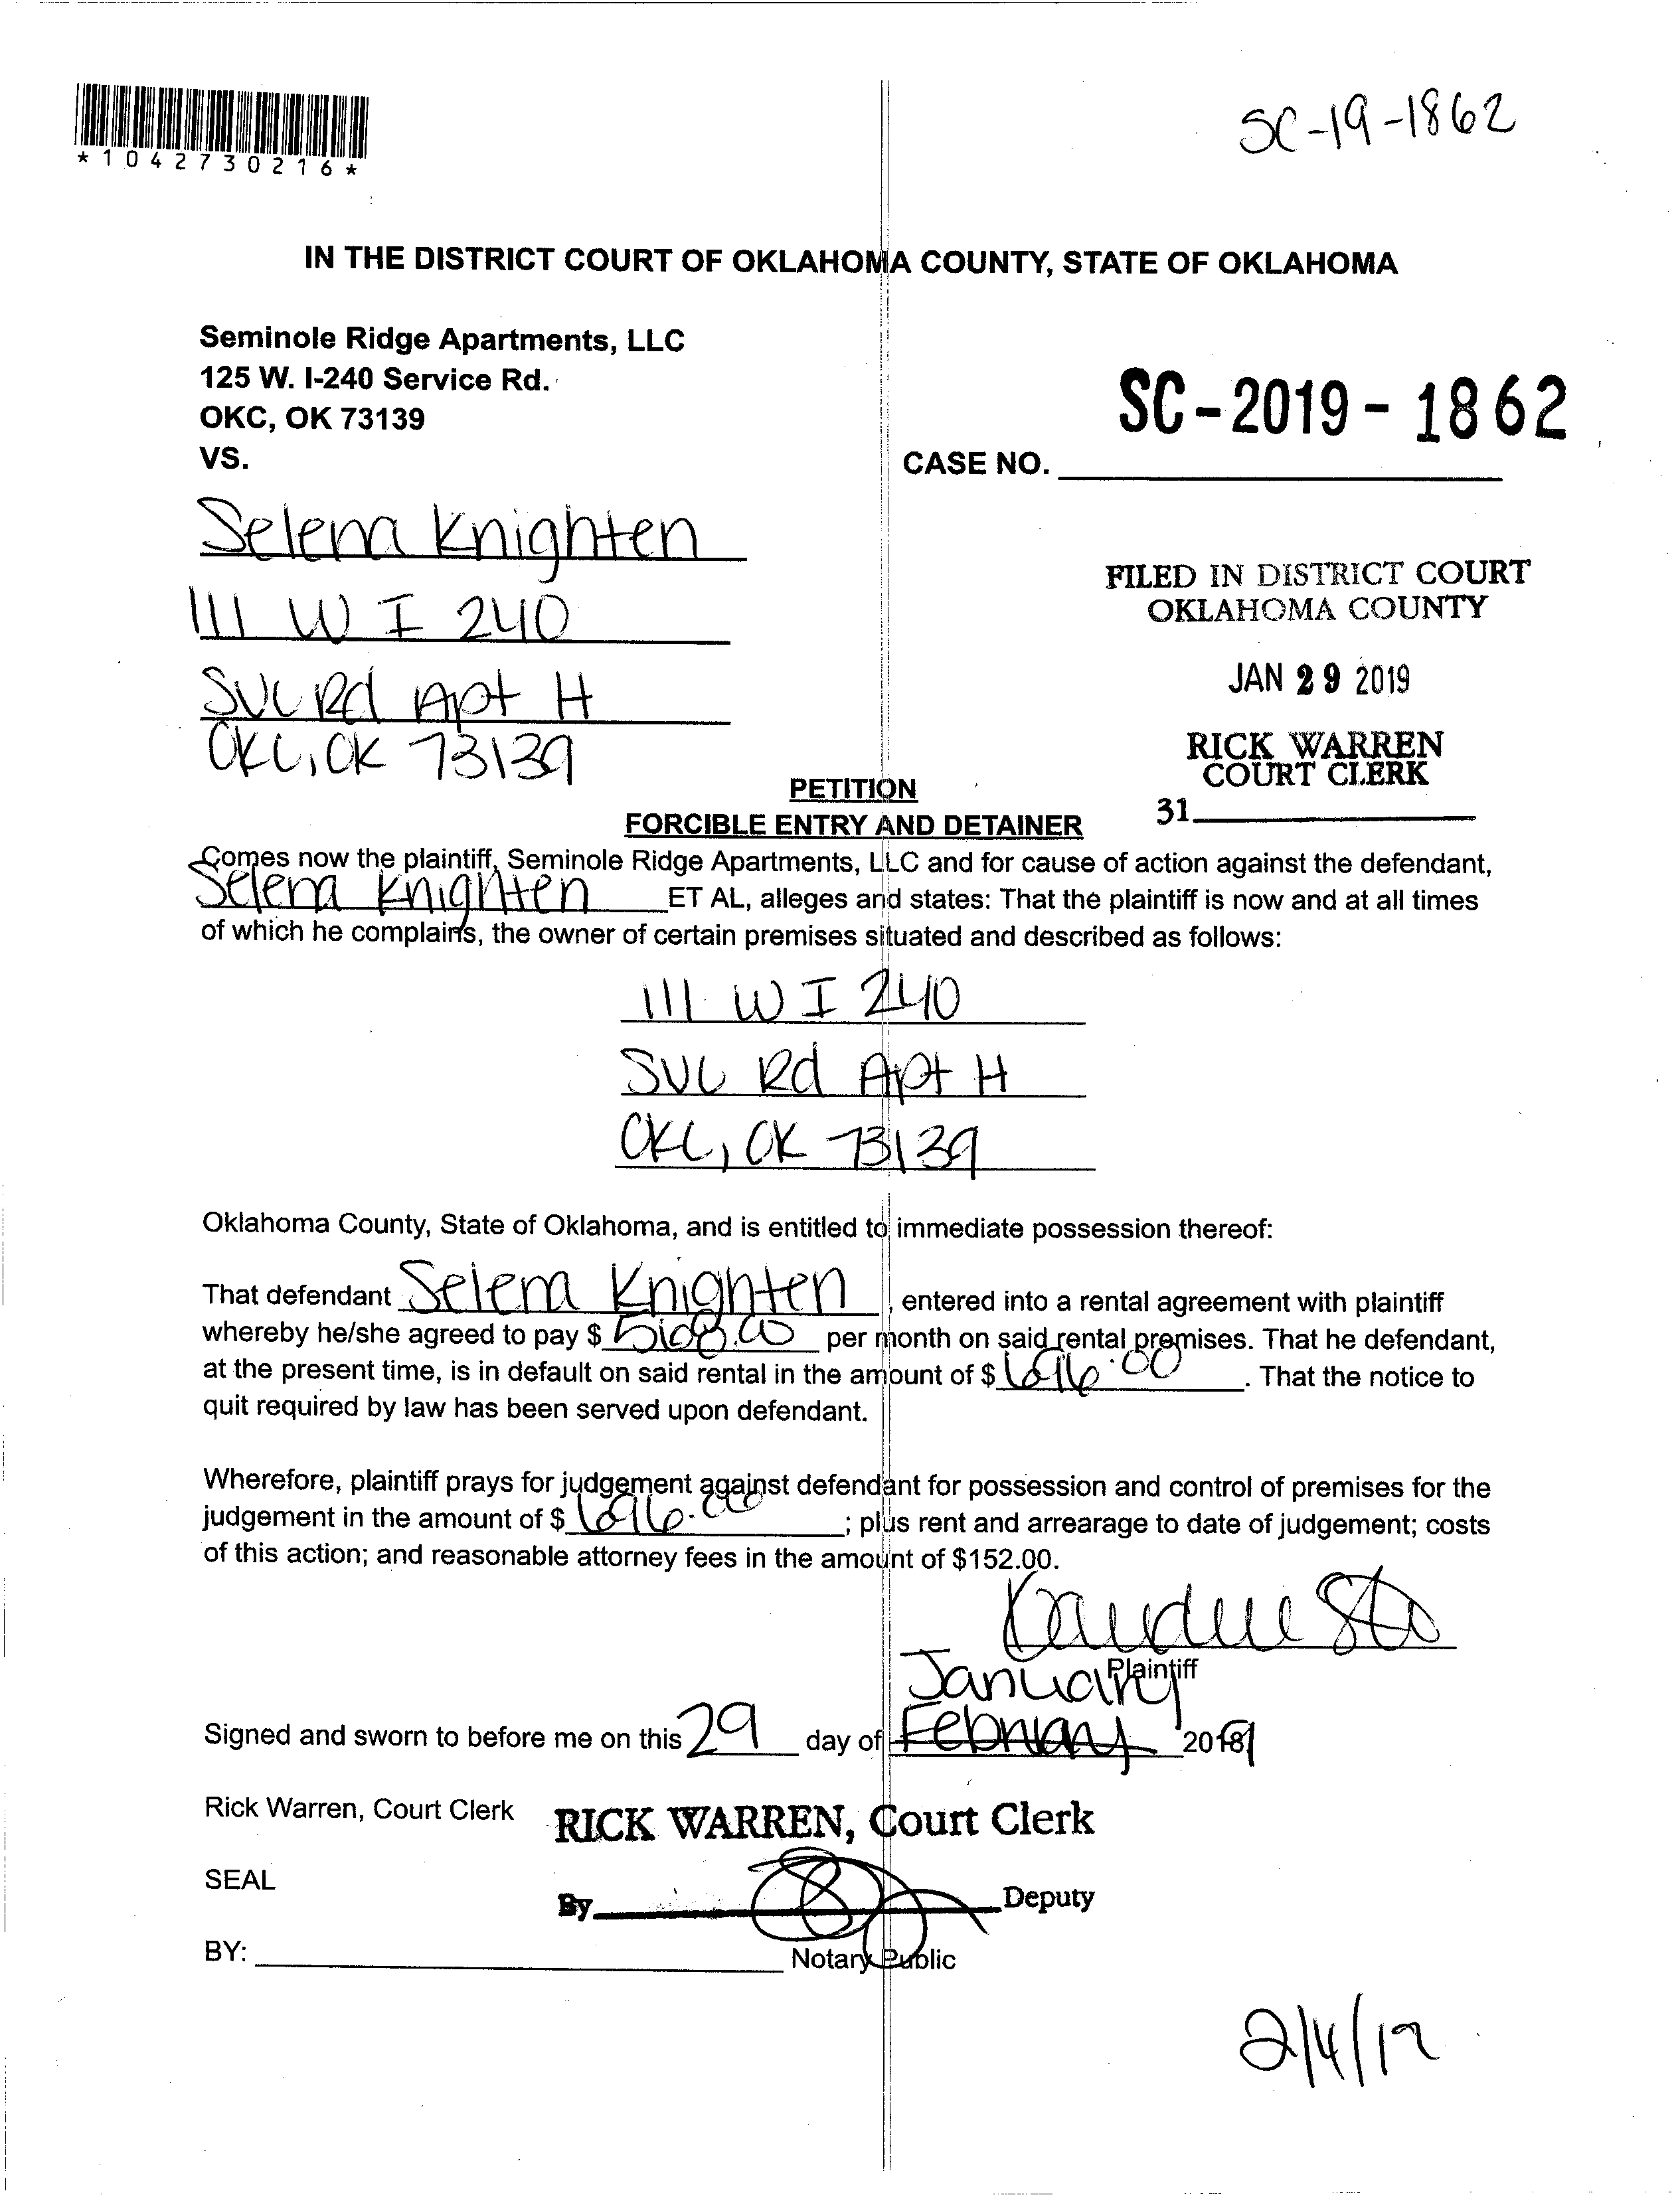 *1042730216*
SC-19-1862
IN THE DISTRICT COURT OF OKLAHOMA COUNTY, STATE OF OKLAHOMA
Seminole Ridge Apartments, LLC
125 W. I-240 Service Rd.
OKC, OK 73139
VS.
SC-2019-1862
CASE NO.
Selena Knighten
111 W I 240
SVC Rd Apt H
OKC, OK 73139
FILED IN DISTRICT COURT
OKLAHOMA COUNTY
JAN 29 2019
RICK WARREN
COURT CLERK
31
PETITION
FORCIBLE ENTRY AND DETAINER
Comes now the plaintiff, Seminole Ridge Apartments, LLC and for cause of action against the defendant,
Selena Knighten ET AL, alleges and states: That the plaintiff is now and at all times
of which he complains, the owner of certain premises situated and described as follows:
111 W I 240
SVC Rd Apt H
OKC, OK 73139
Oklahoma County, State of Oklahoma, and is entitled to immediate possession thereof:
That defendant Selena Knighten, entered into a rental agreement with plaintiff
whereby he/she agreed to pay $ per month on said rental premises. That he defendant,
at the present time, is in default on said rental in the amount of $ . That the notice to
quit required by law has been served upon defendant.
Wherefore, plaintiff prays for judgement against defendant for possession and control of premises for the
judgement in the amount of $ ; plus rent and arrearage to date of judgement; costs
of this action; and reasonable attorney fees in the amount of $152.00.
Plaintiff
January
Signed and sworn to before me on this 29 day of February 2019
Rick Warren, Court Clerk
RICK WARREN, Court Clerk
SEAL
By Deputy
BY: Notary Public
2/4/19